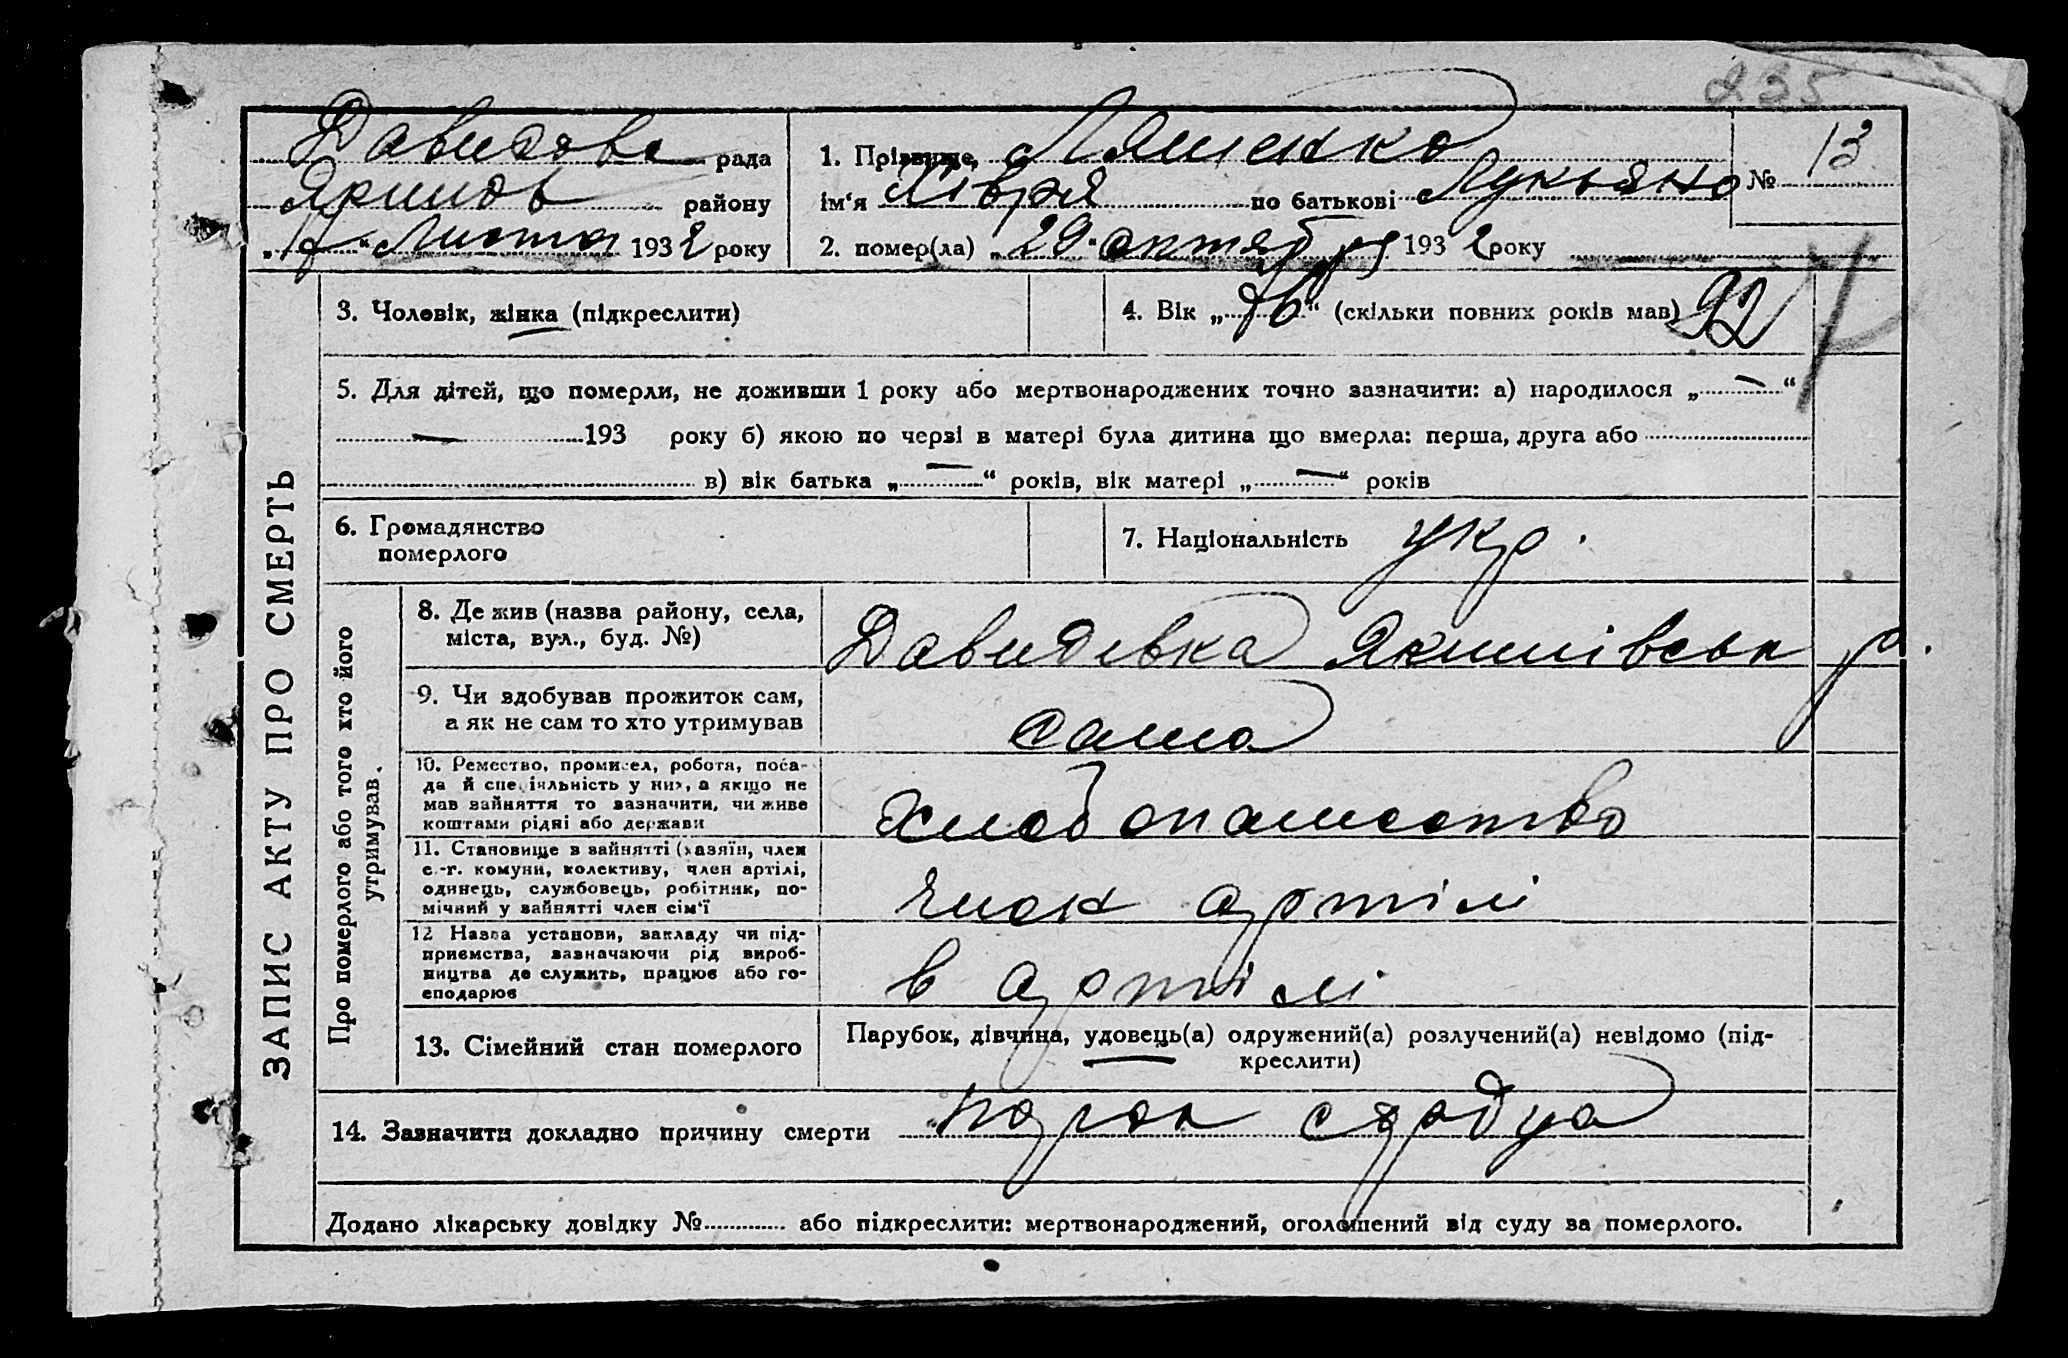 235
Давидове рада
Якимов району
„17“ Листоп 1932 року
1. Прізвище, Ляшенко
ім‘я по батькові Лукьяно
2. помер(ла) „29“ октября 1932 року
№ 13
3. Чоловік, жінка (підкреслити)
4. Вік „76“ (скільки повних років мав) 92
5. Для дітей, що померли, не доживши 1 року або мертвонароджених точно зазначити: а) народилося „—“
— 193 року б) якою по черзі в матері була дитина що вмерла: перша, друга або
в) вік батька „—“ років, вік матері „—“ років
6. Громадянство
померлого
7. Національність укр.
ЗАПИС АКТУ ПРО СМЕРТЬ
Про померлого або того хто його
утримував.
8. Де жив (назва району, села,
міста, вул., буд. №)
Давидівка Якимівськ р.
9. Чи здобував прожиток сам,
а як не сам то хто утримував
сама
10. Ремество, промисел, робота, поса-
да й спеціяльність у них, а якщо не
мав зайняття то зазначити, чи живе
коштами рідні або держави
хлебопашество
11. Становище в зайнятті (хазяїн, член
с.-г. комуни, колективу, член артілі,
одинець, службовець, робітник, по-
мічний у зайнятті член сім‘ї
член артілі
12 Назва установи, закладу чи під-
приємства, зазначаючи рід вироб-
ництва де служить, працює або го-
сподарює
в артілі
13. Сімейний стан померлого
Парубок, дівчина, удовець(а) одружений(а) розлучений(а) невідомо (під-
креслити)
14. Зазначити докладно причину смерти порок сердца
Додано лікарську довідку № або підкреслити: мертвонароджений, оголошений від суду за померлого.